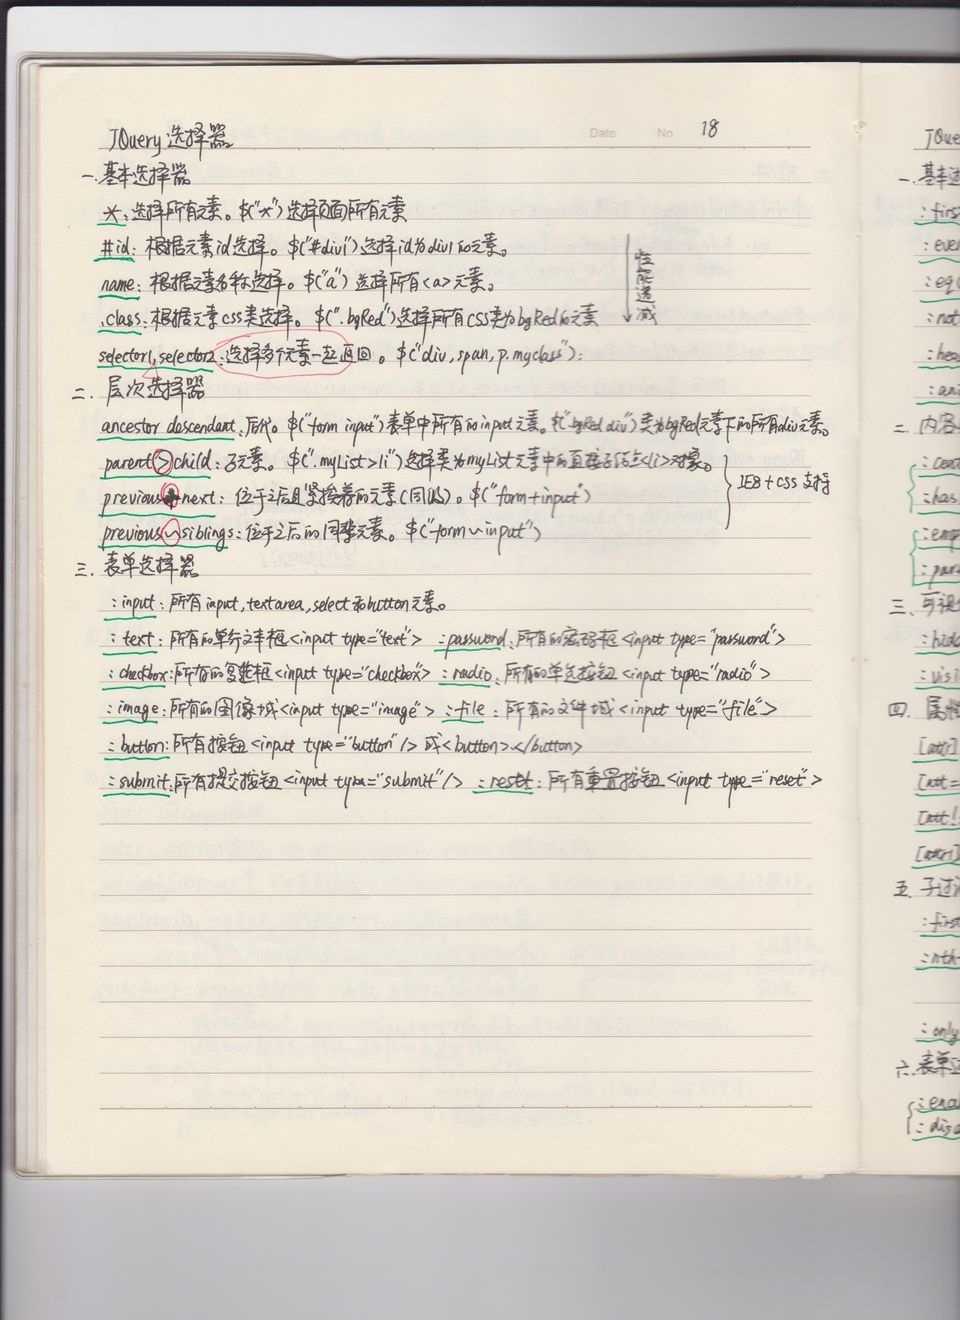 Date No 18
JQuery 选择器
一.基本选择器
*:选择所有元素。$("*")选择页面所有元素
#id:根据元素id选择。$("#div1")选择id为div1的元素。
name:根据元素名称选择。$("a")选择所有<a>元素。
.class:根据元素css类选择。$(".bgRed")选择所有CSS类为bgRed的元素
性能递减
selector1,selector2:选择多个元素一起返回。$("div,span,p.myclass");
二.层次选择器
ancestor descendant:后代。$("form input")表单中所有的input元素。$(".bgRed div")类为bgRed元素下的所有div元素。
parent>child:子元素。$(".myList>li")选择类为myList元素中的直接子节点<li>对象。
previous+next:位于之后且紧挨着的元素(同级)。$("form+input")
IE8+css支持
previous~siblings:位于之后的同辈元素。$("form~input")
三.表单选择器
:input:所有input,textarea,select和button元素。
:text:所有的单行文本框<input type="text"> :password:所有的密码框<input type="password">
:checkbox:所有的复选框<input type="checkbox"> :radio:所有的单选按钮<input type="radio">
:image:所有的图像域<input type="image"> :file:所有的文件域<input type="file">
:button:所有按钮<input type="button"/>或<button></button>
:submit:所有提交按钮<input type="submit"/> :reset:所有重置按钮<input type="reset">
JQue
一.基本
:firs
:eve
:eq(
:not
:hea
:ani
二.内容
:cont
:has
:emp
:par
三.可视
:hidd
:visi
四.属性
[attr]
[att=
[att!
[attr1]
五.子过
:first
:nth-
:only
六.表单
:ena
:disa